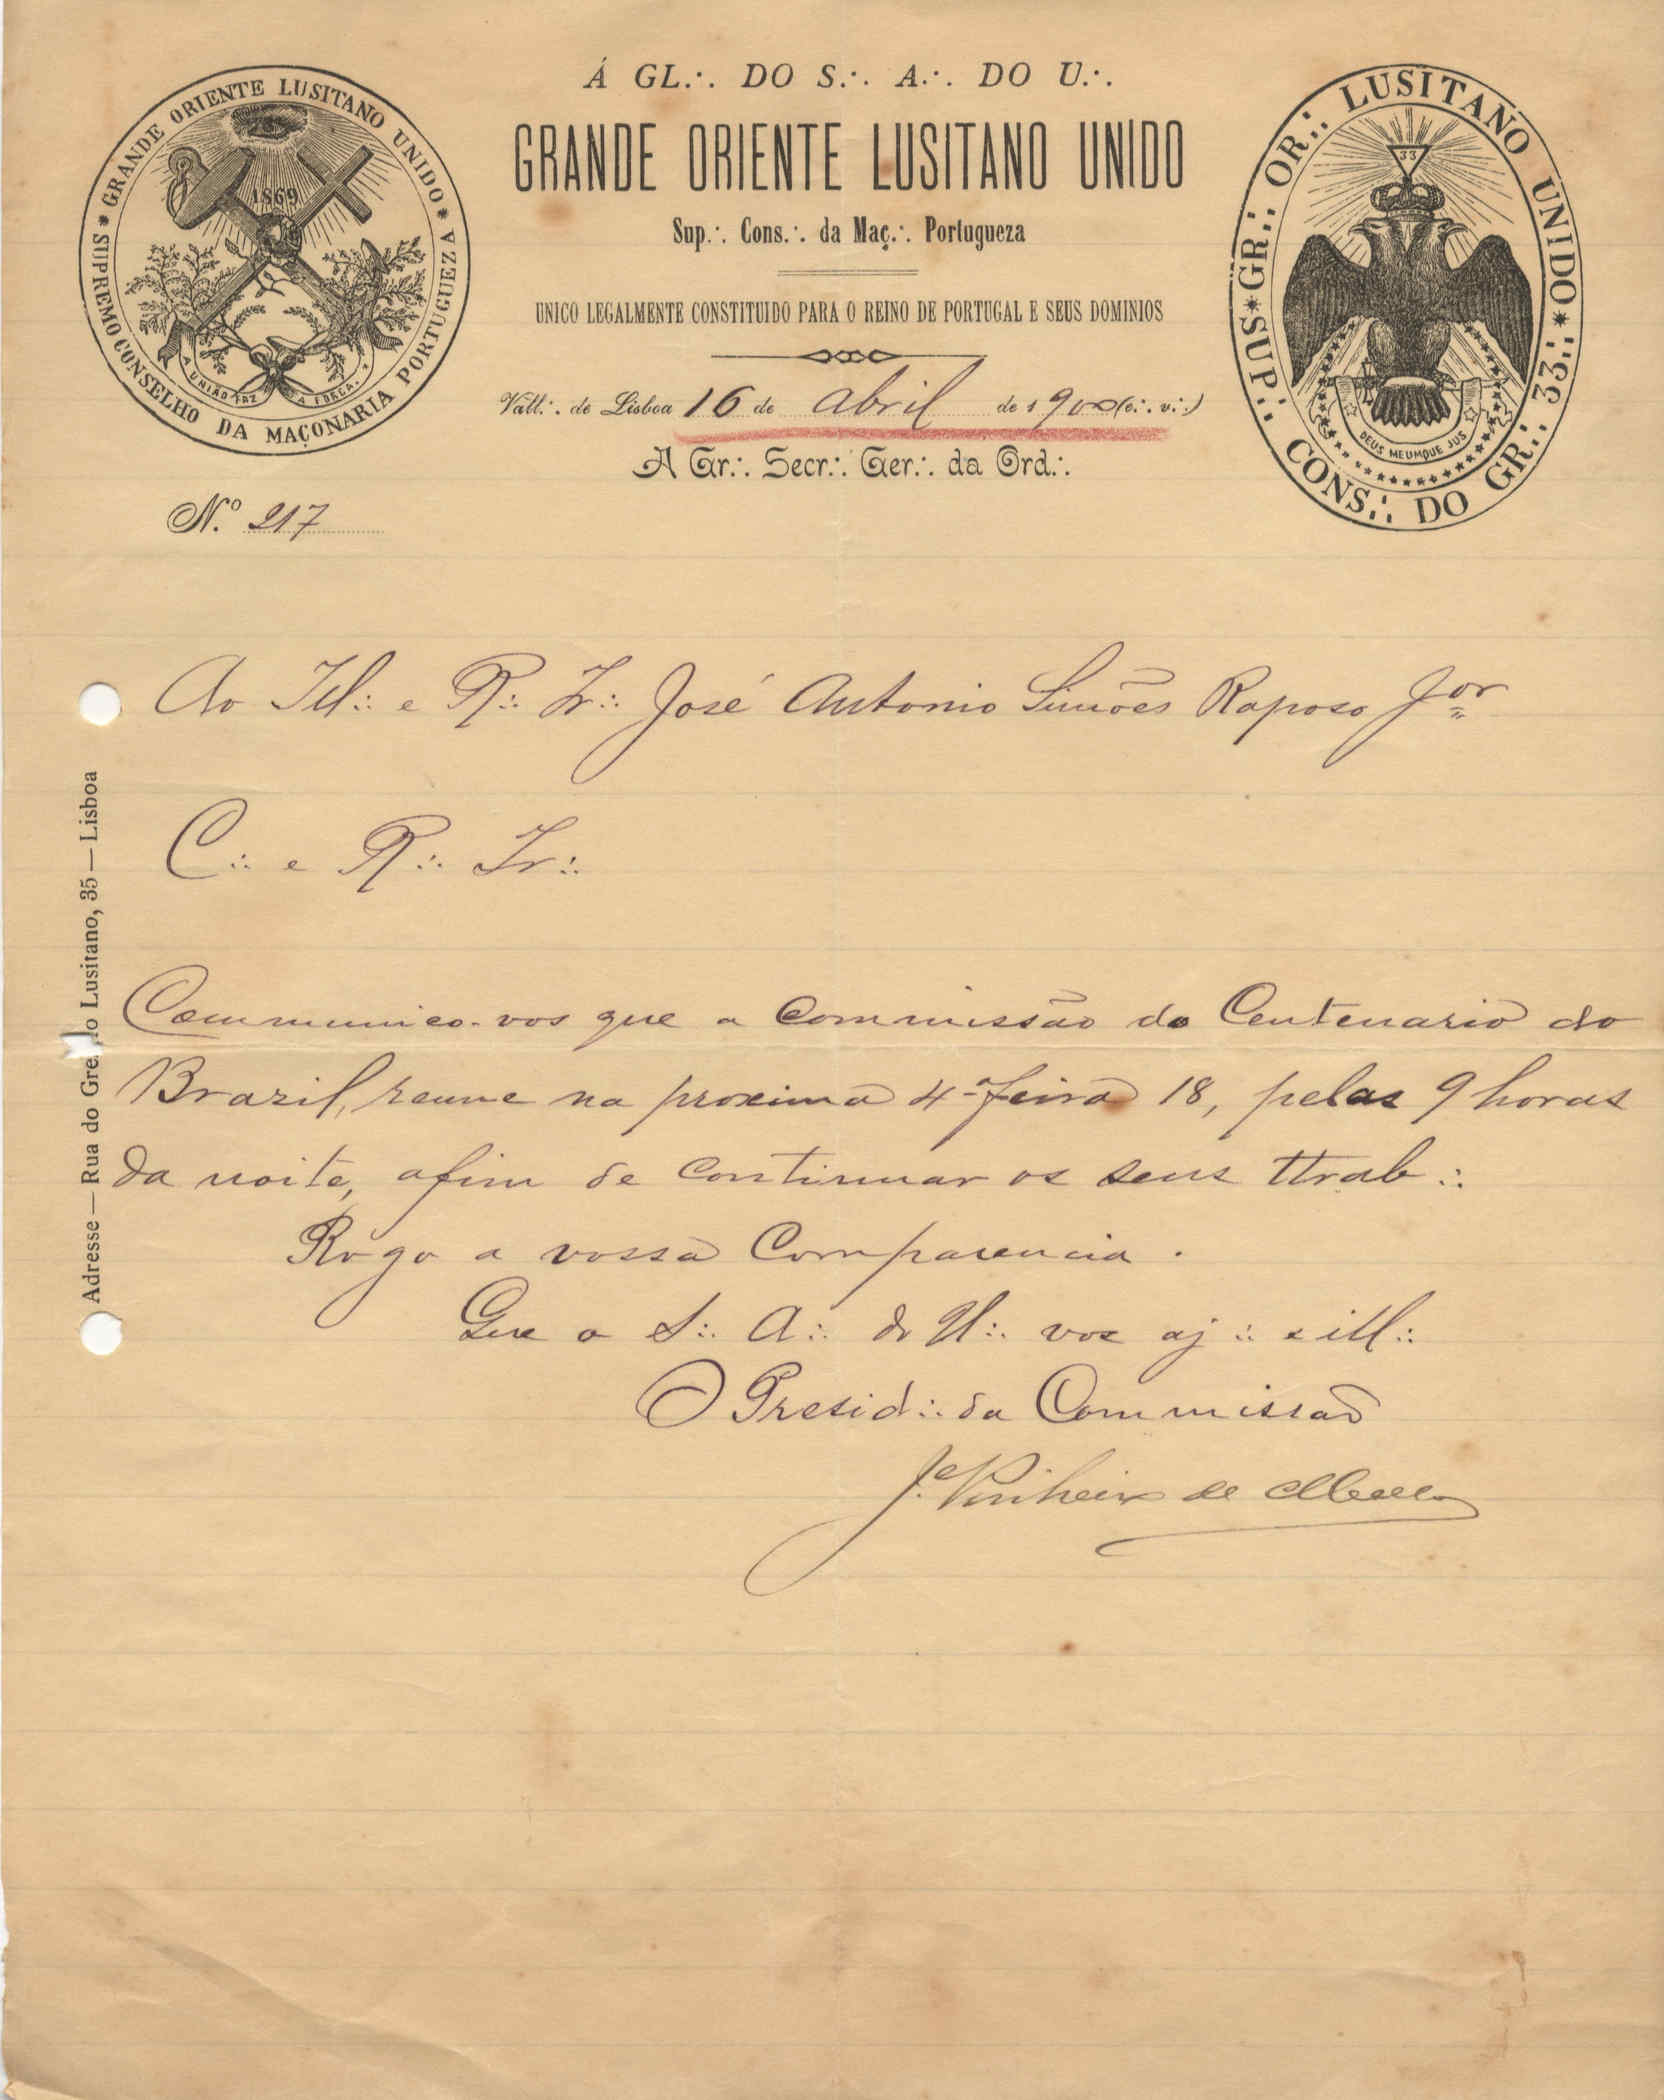 Á GL.·. DO S.·. A.·. DO U.·.
GRANDE ORIENTE LUSITANO UNIDO
Sup.·. Cons.·. da Maç.·. Portugueza
UNICO LEGALMENTE CONSTITUIDO PARA O REINO DE PORTUGAL E SEUS DOMINIOS
Vall.·. de Lisboa 16 de Abril de 1900 (e.·. v.·.)
A Gr.·. Secr.·. Ger.·. da Ord.·.
GRANDE ORIENTE LUSITANO UNIDO * SUPREMO CONSELHO DA MAÇONARIA PORTUGUEZA *
1869
A UNIÃO FAZ A FORÇA
* GR.·. OR.·. LUSITANO UNIDO * SUP.·. CONS.·. DO GR.·. 33.·.
33
DEUS MEUMQUE JUS
N.º 217
Ao Ill.·. e R.·. Ir.·. José Antonio Simões Raposo Jor
C.·. e R.·. Ir.·.
Communico-vos que a Commissão do Centenario do
Brazil, reune na proxima 4ª feira 18, pelas 9 horas
da noite, afim de continuar os seus ttrab.·.
Rogo a vossa comparencia.
Que o S.·. A.·. do U.·. vos aj.·. e ill.·.
O Presid.·. da Commissão
J. Pinheiro de Mello
Adresse — Rua do Gremio Lusitano, 35 — Lisboa